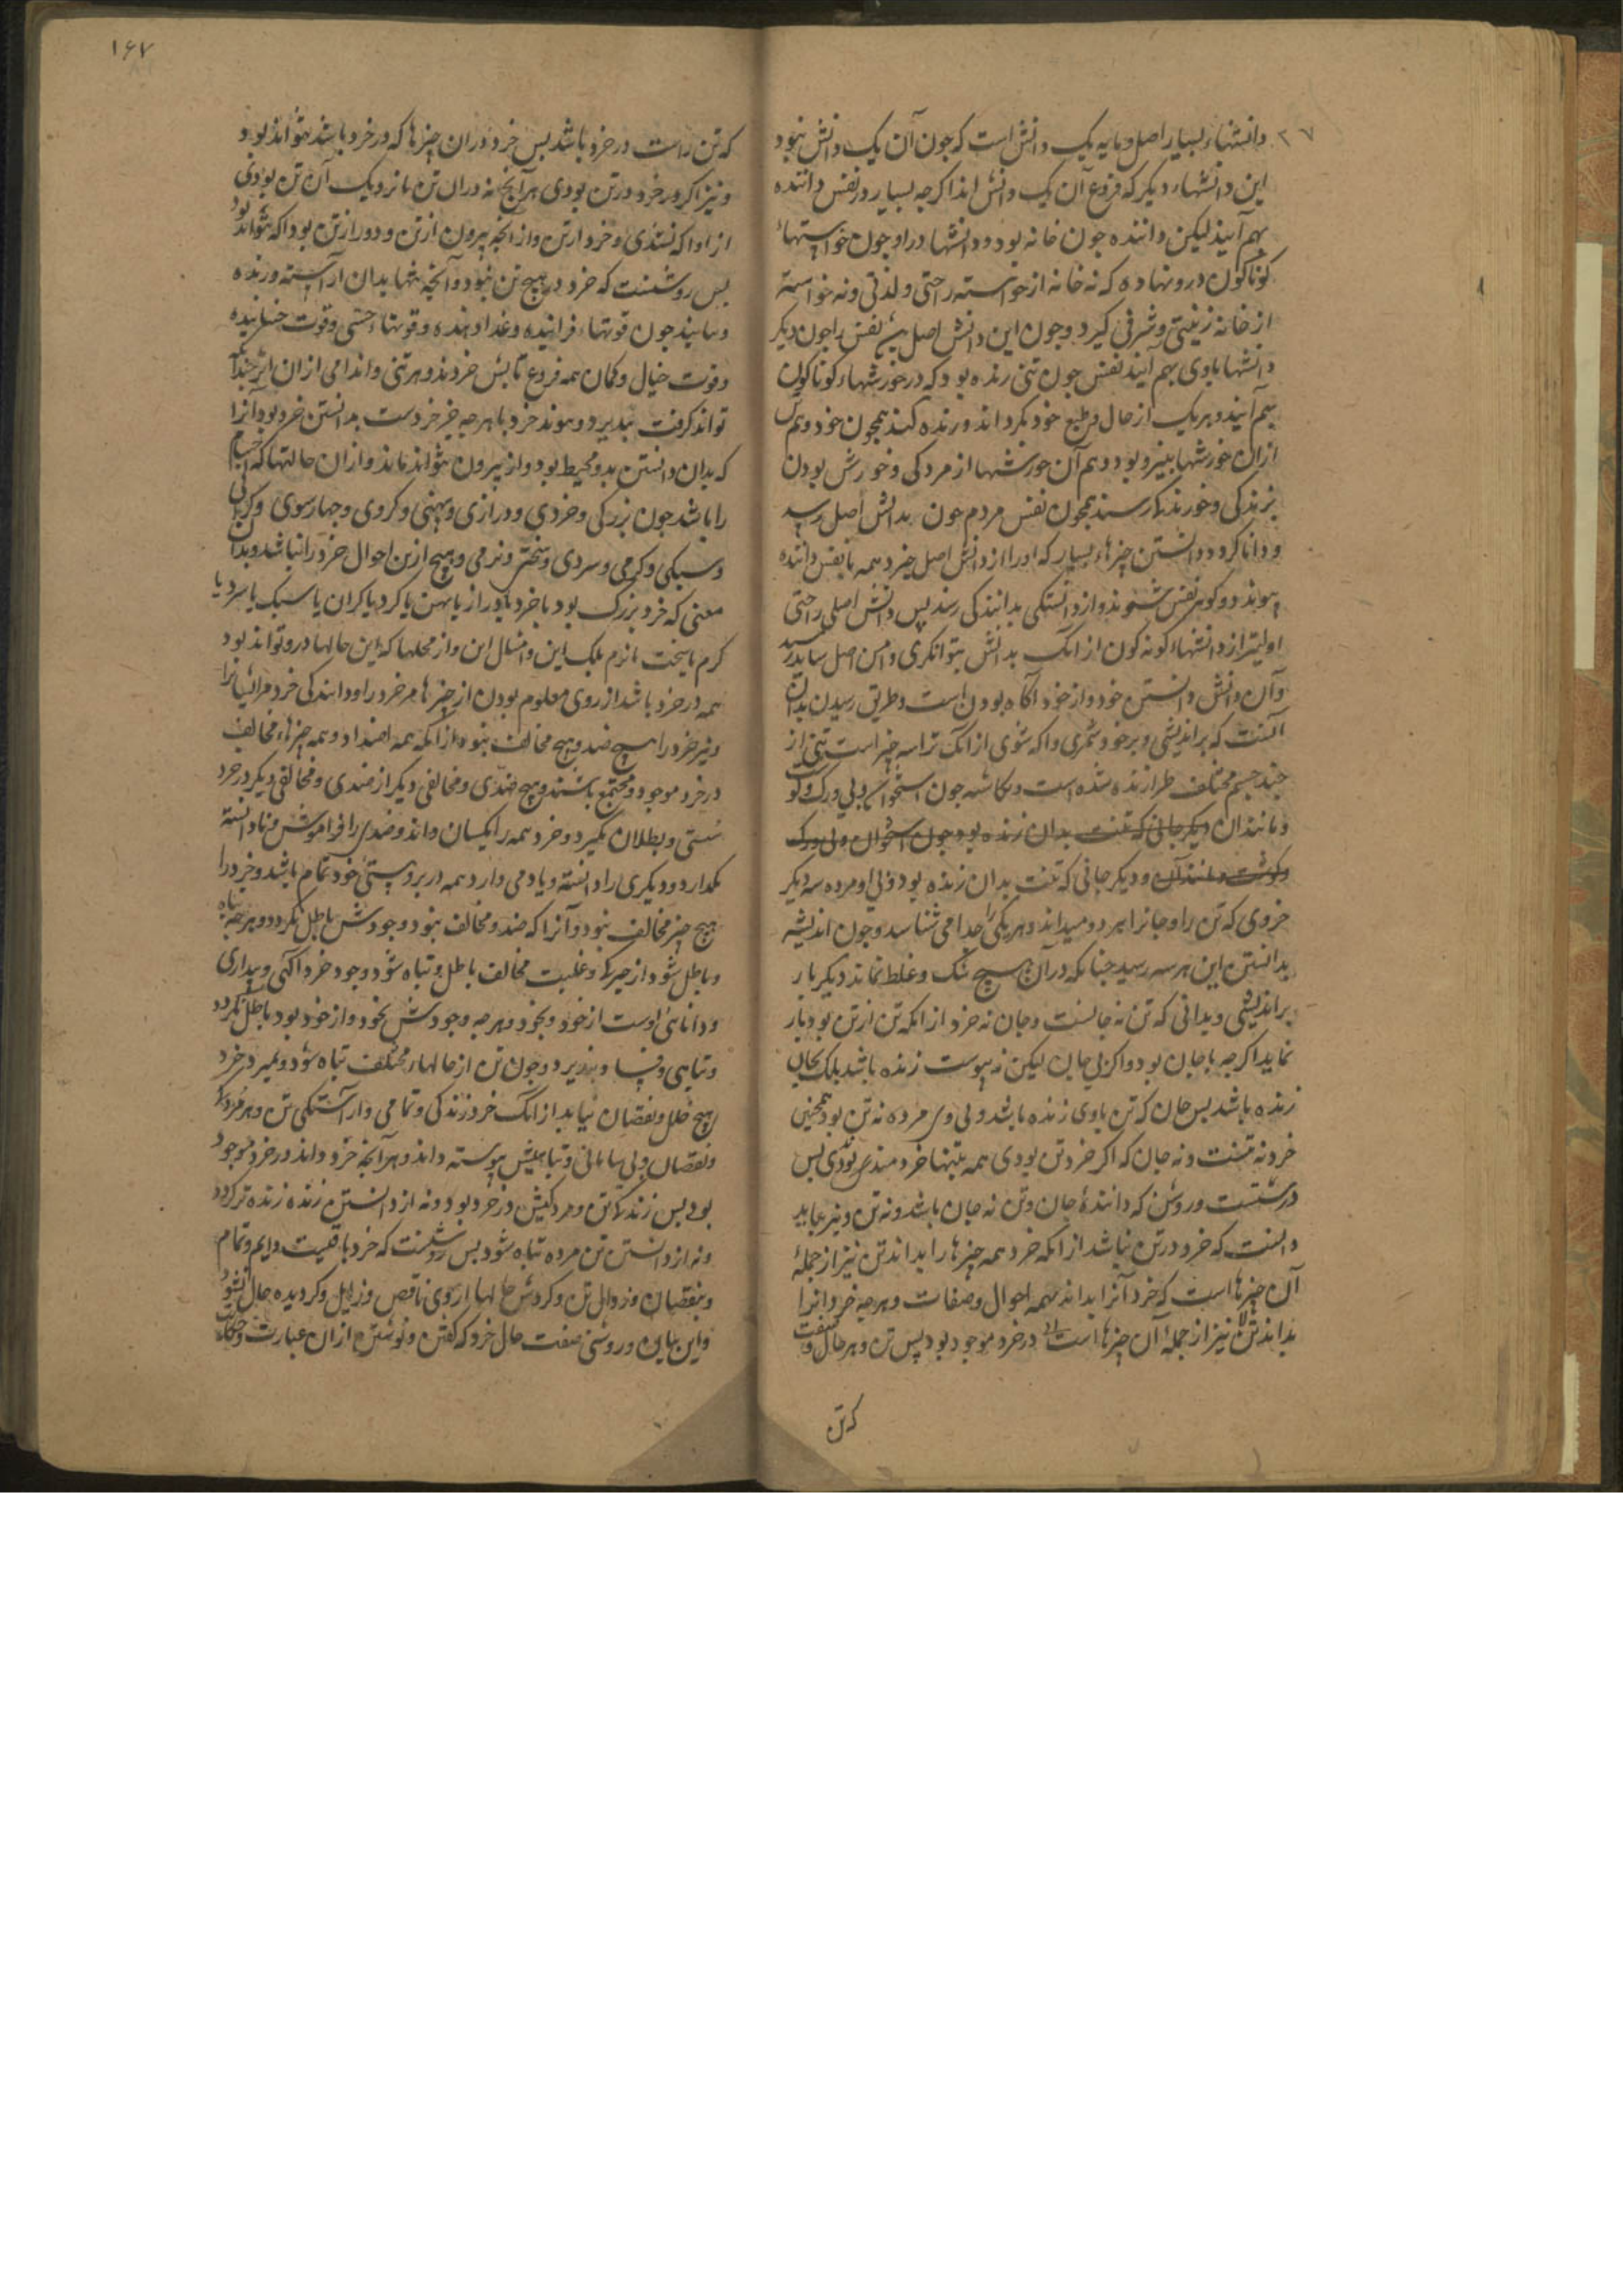 دانشهاء بسیار اصل و مایه یک دانش است که جون آن یک دانش نبود
این دانشهاء دیکر که فروع آن یک دانش اند اکرجه بسیار در نفس داننده
بهم آیند لیکن داننده جون خانه بود و دانشها در او جون خواستهاء
کوناکون درو نهاده که نه خانه از خواسته راحتی و لذتی و نه خواسته
از خانه زینتی و شرفی کیرد و جون این دانش اصل نفس را جون دیکر
دانشها باوی بهم آیند نفس جون تنی زنده بود که در خورشهاء کوناکون
بهم آیند و هر یک از حال و طبع خود بکرداند و زنده کند همجون خود و هم
ازان خورشها بنیرو بود و هم آن خورشها از مردکی و خورش بودن
بزندکی و خورندکی رسند همجون نفس مردم جون بدانش اصل رسید
و دانا کردد دانستن جیزهاء بسیار که او را از دانش اصل خیزد همه با نفس داننده
بیوندد و کوهر نفس شوند و از دانستکی بدانندکی رسند بس دانش اصلی راحتی
اولیتر از دانشهاء کونه کون از انک بدانش بتوانکری و امن اصل شاید رسید
و آن دانش دانستن خود و از خود آکاه بودن است و طریق رسیدن بدان
آنست که براندیشی و برخود شمری و آکه شوی از انک ترا سه جیز است تنی از
جند جسم مختلف طرازنده شده است و نکاشته جون استخوان و بی و رک و کوشت
و مانند آن دیکر جانی که تنت بدان زنده بود جون استخوان و بی و رک
و کوشت و مانند آن و دیکر جانی که تنت بدان زنده بود و بی او مرده سه دیکر
خردی که تن را و جانرا هر دو میداند و هر یکی را جدا می شناسد و جون اندیشه
بدانستن این هر سه رسید جنانکه در آن هیج شک و غلط نماند دیکر بار
براندیشی و بدانی که تن نه جانست و جان نه خرد از انکه تن از تن بودن باز
نماید اکرجه با جان بود و اکر بی جان لیکن نه بیوست زنده باشد بلک بجان
زنده باشد بس جان که تن باوی زنده باشد و بی وی مرده نه تن بود همجنین
خرد نه تنست و نه جان که اکر خرد تن بودی همه تنها خردمند بودی بس
درستست و روشن که دانندهٔ جان و تن نه جان باشد و نه تن و نیز بباید
دانست که خرد در تن نباشد از انکه خرد همه جیزها را بداند تن نیز از جملهٔ
آن جیزها است که خرد آنرا بداند بهمه احوال و صفات و هرجه خرد انرا
بداند تن نیز از جملهٔ آن جیزها است در خرد موجود بود پس تن و هر حال و صفت
که تن
۱۶۷
که تن راست در خرد باشد بس خرد در ان جیزها که در خرد باشد نتواند بود
و نیز اکر خرد در تن بودی هر آنجه نه در ان تن یا نزدیک آن تن بودی
از او آکه نشدی و خرد از تن و از انجه بیرون از تن و دور از تن بود آکه بتواند بود
بس روشنست که خرد در هیج تن نبود و آنجه تنها بدان آراسته و زنده
و نمایند جون قوتهاء فزاینده و غذا دهنده و قوتهاء حسی و قوت جنباننده
و قوت خیال و کمان همه فروع تابش خردند و هر تنی و اندامی از ان اثر جندانکه
تواند کرفت بپذیرد و بیوند خرد با هر جه جز خردست بدانستن خرد بود انرا
که بدان دانستن بدو محیط بود و از بیرون نتواند ماند و ازان حالتها که اجسام
را باشد جون بزرکی و خردی و درازی و پهنی و کردی و جهارسوی و کرانی
و سبکی و کرمی و سردی و سختی و نرمی و هیج ازین احوال خرد را نباشد و بدان
معنی که خرد بزرک بود یا خرد یا دراز یا پهن یا کرد یا کران یا سبک یا سرد یا
کرم یا سخت یا نرم بلک این و امثال این و از محلها که این حالها درو تواند بود
همه در خرد باشد از روی معلوم بودن این جیزها مر خرد را و دانندکی خرد مر ایشانرا
و نیز خرد را هیج ضد و هیج مخالف نبود از انکه همه اضداد و همه جیزهاء مخالف
در خرد موجود و مجتمع باشند و هیج ضدی و مخالفی دیکر از ضدی و مخالفی دیکر در خرد
سستی و بطلان نکیرد و خرد همه را یکسان داند و ضدی را فراموش و نادانسته
نکذارد و دیکری را دانسته و یاد می دارد همه در بر وستی خود تمام باشد و خرد را
هیج جیز مخالف نبود و آنرا که ضد و مخالف نبود وجودش باطل نکردد و هرجه تباه
و باطل شود از جیرکی و غلبت مخالف باطل و تباه شود وجود خرد آکهی و بیداری
و دانائی اوست از خود و بخود و هرجه وجودش بخود و از خود بود باطل نکردد
و تباهی و فنا نپذیرد و جون تن از حالهاء مختلف تباه شود و بمیرد خرد
را هیج خلل و نقصان نیاید از انک خرد زندکی و تمامی و آراستکی تن و هم مردکی
و نقصان و بی سامانی و تباهیش بیوسته داند و هر آنجه خرد داند در خرد موجود
بود بس زندکی تن و مردکیش در خرد بود و نه از دانستن زنده زنده تر کردد
و نه از دانستن تن مرده تباه شود بس روشنست که خرد باقیست و دایم و تمام
و بنقصان و زوال تن و کردش حالها از وی ناقص و زایل و کردیده حال نشود
و این بیان و روشنی صفت حال خرد که کفتن و نوشتن ازان عبارت و حکایت